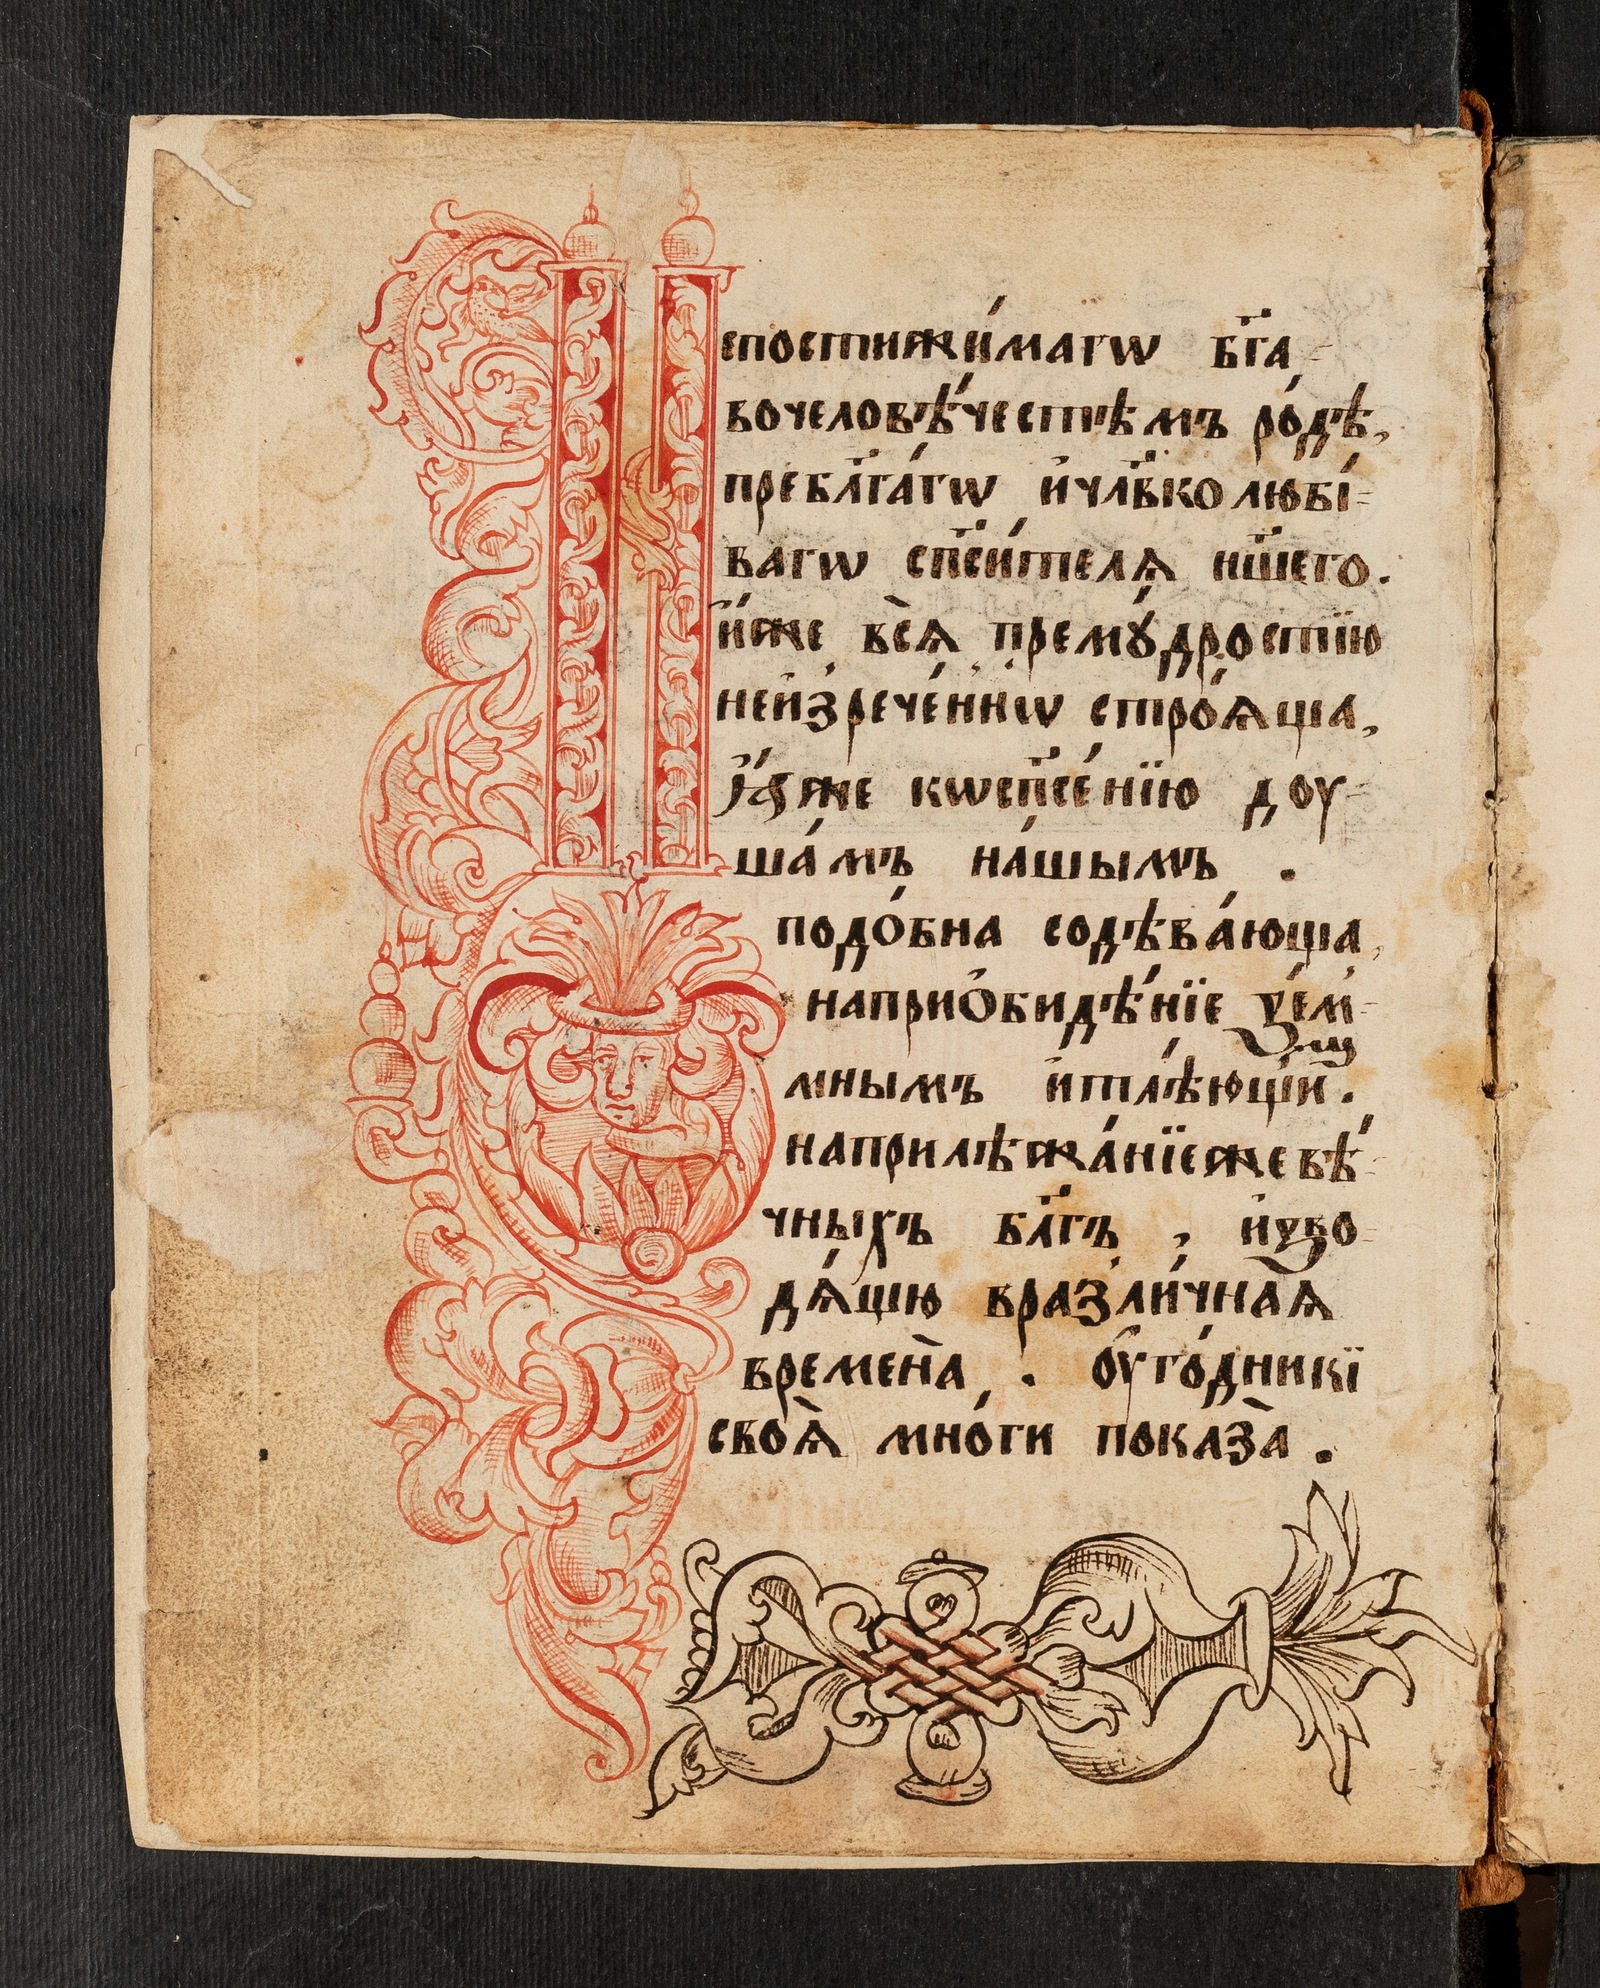 Непостижи́магѡ бг҃а
вочеловѣ́честѣмъ ро́дѣ,
пребл҃га́гѡ и҆чл҃вколюбі-
вагѡ сп҃си́телѧ нш҃его.
и҆́же всѧ̀ прему́дростїю
неи҆зрече́ннѡ стро́ѧща,
ꙗ҆́же кѡсп҃се́нїю доу-
ша́мъ на́шымъ .
подо́бна содѣва́юща,
наприѻ҆бидѣ́нїе
мнымъ и҆тлѣ́ющи .
наприлѣжа́нїежевѣ́-
чныхъ бл҃гъ ,
дѧ́щю вразли́чнаѧ
времена̀ . ѹ҆го́дникї
своѧ̀ мно́ги показа̀ .